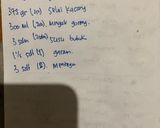 375 gr (20) Selai Kacang
300 ml (20) Minyak goreng.
3 sdm (20m) Susu bubuk
1½ sdt (1) garam.
3 sdt (2)